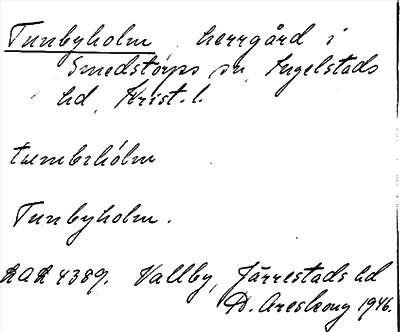 Tunbyholm, herrgård i
Smedstorps sn, Ingelstads
hd, Krist. l.
tumbhólm
Tunbyholm.
4389. Vallby, Järrestads hd
D. Areskoug 1946.